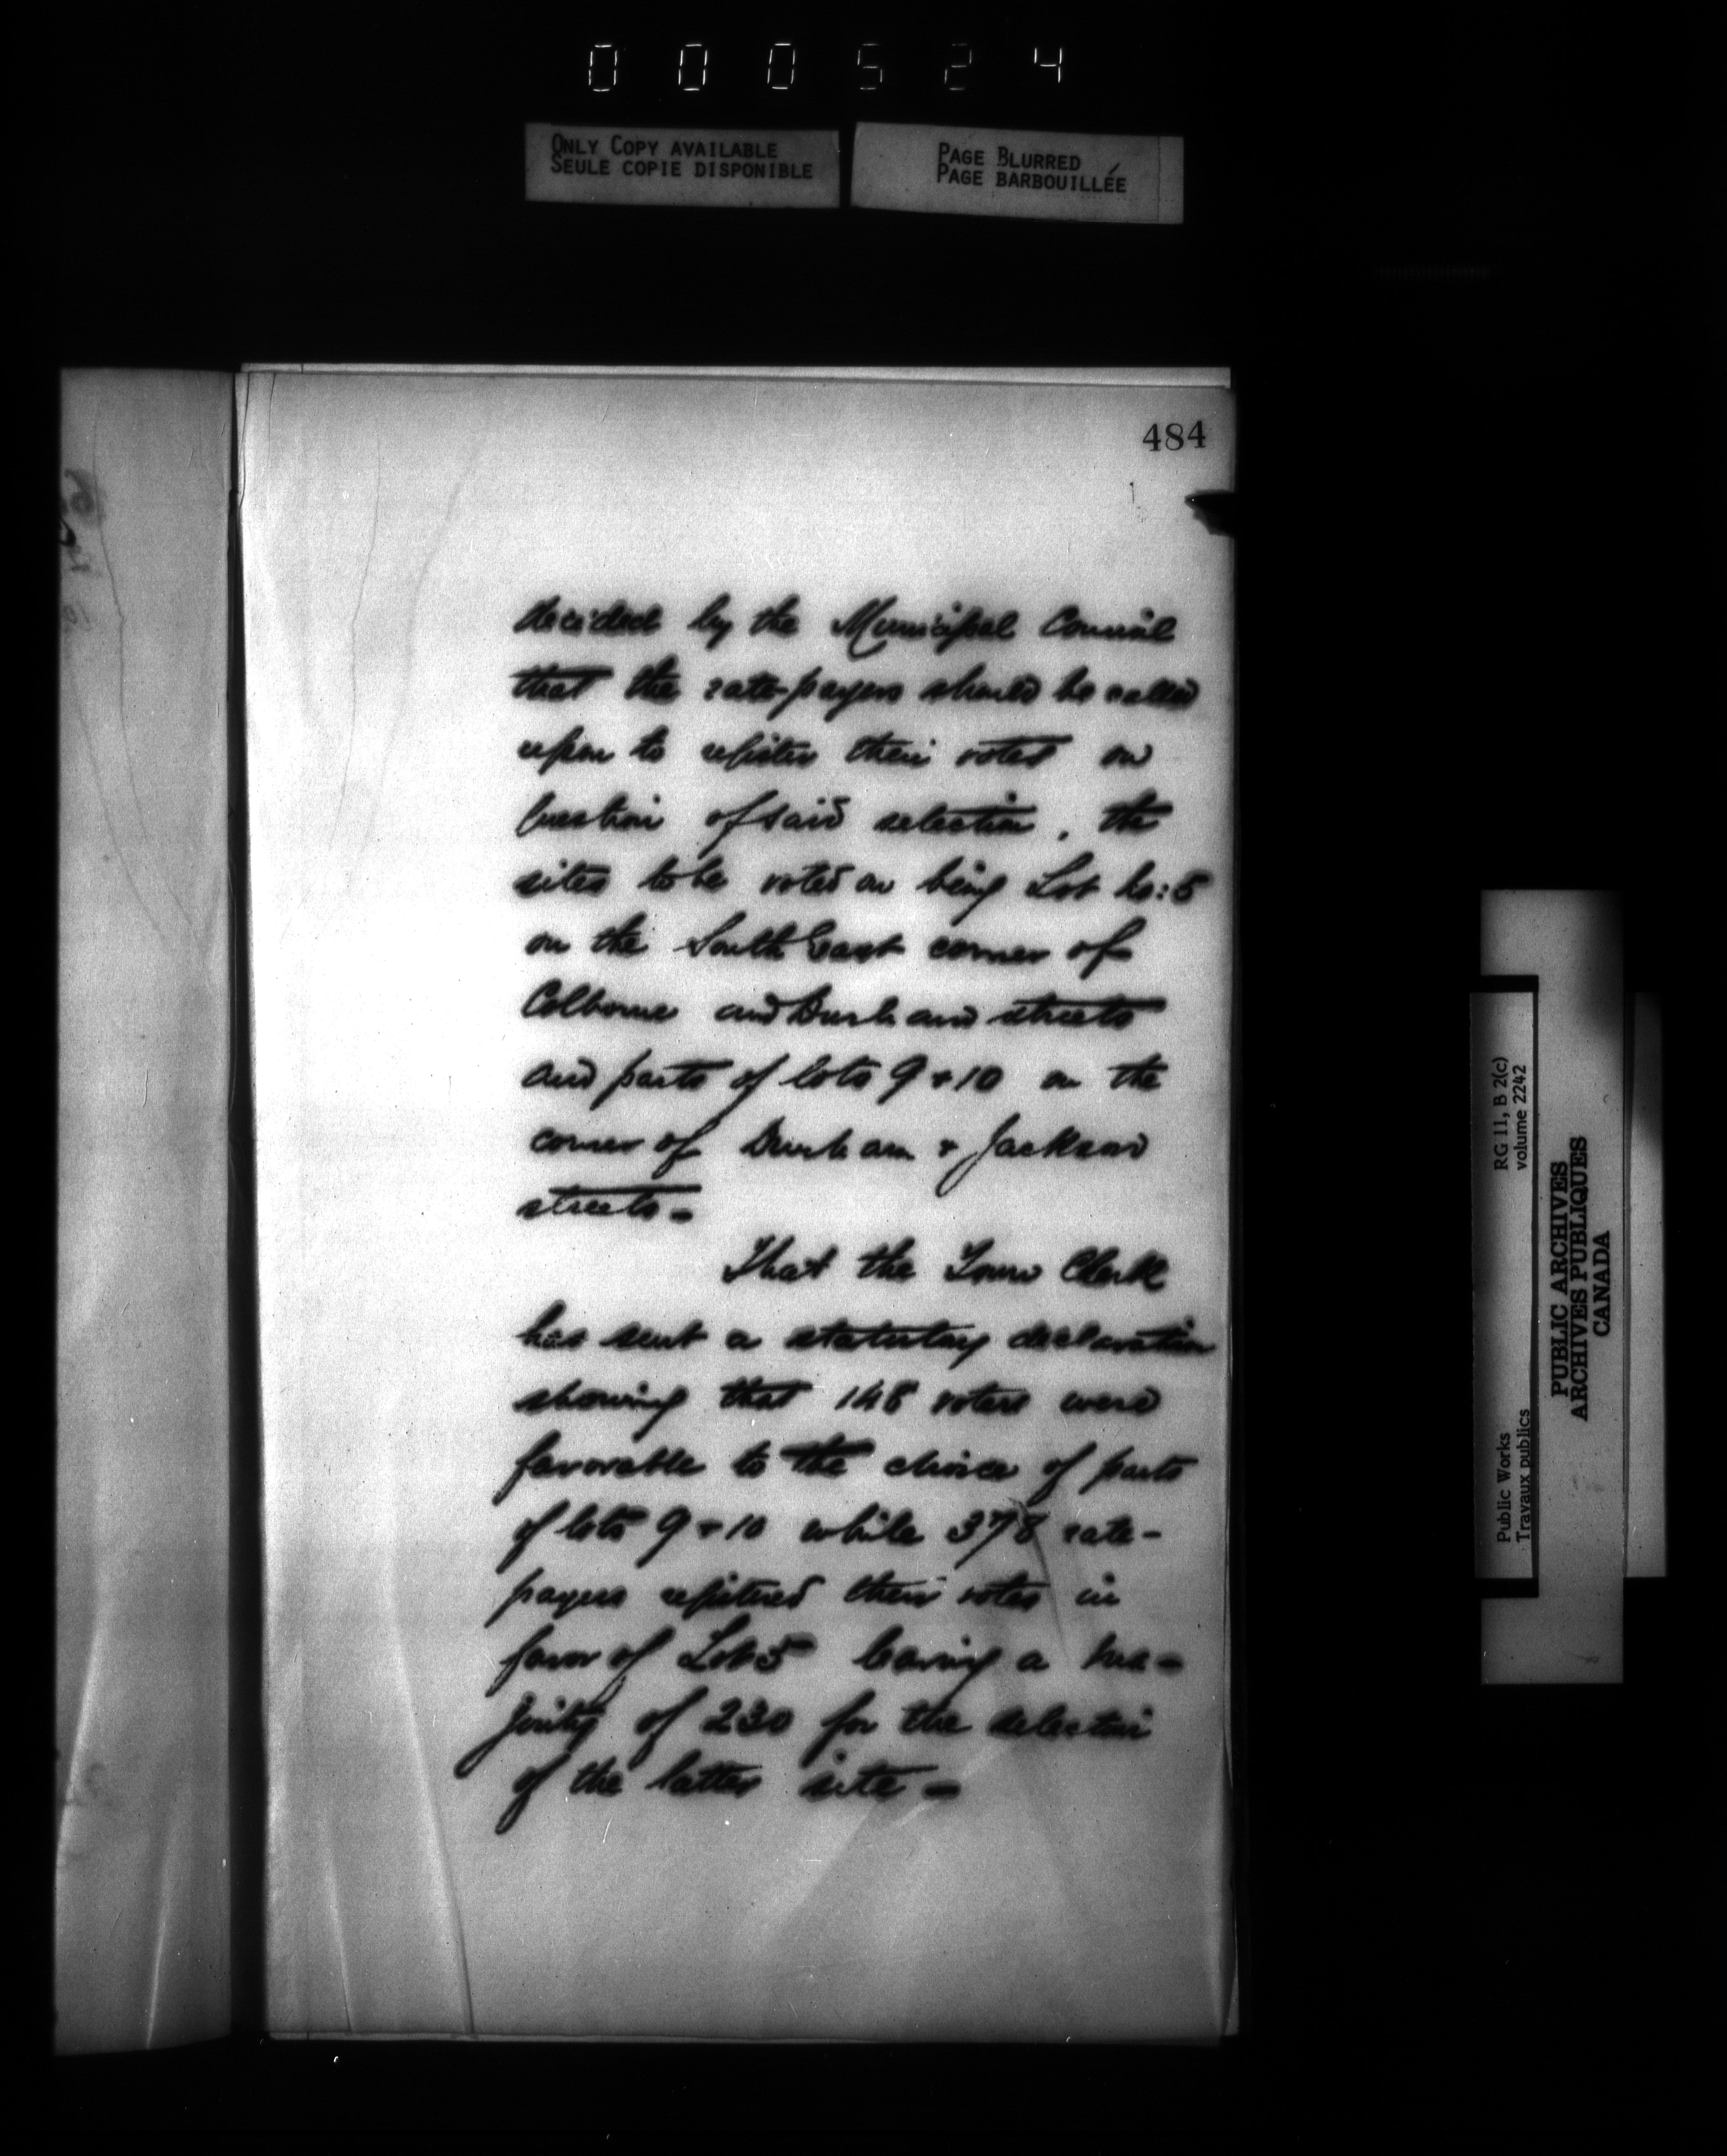 000524
ONLY COPY AVAILABLE
SEULE COPIE DISPONIBLE
PAGE BLURRED
PAGE BARBOUILLÉE
484
decided by the Municipal Council
that the rate-payers should be called
upon to register their votes on
question of said selection, the
sites to be voted on being Lot No: 5
on the South East corner of
Colborne and Durham streets
and parts of lots 9 + 10 on the
corner of Durham + Jackson
streets -
That the Town Clerk
has sent a statutory declaration
showing that 148 voters were
favorable to the choice of parts
of lots 9 + 10 while 378 rate-
payers registered their votes in
favor of Lot 5 leaving a ma-
jority of 230 for the selection
of the latter site -
Public Works
Travaux publics
RG 11, B 2(c)
volume 2242
PUBLIC ARCHIVES
ARCHIVES PUBLIQUES
CANADA